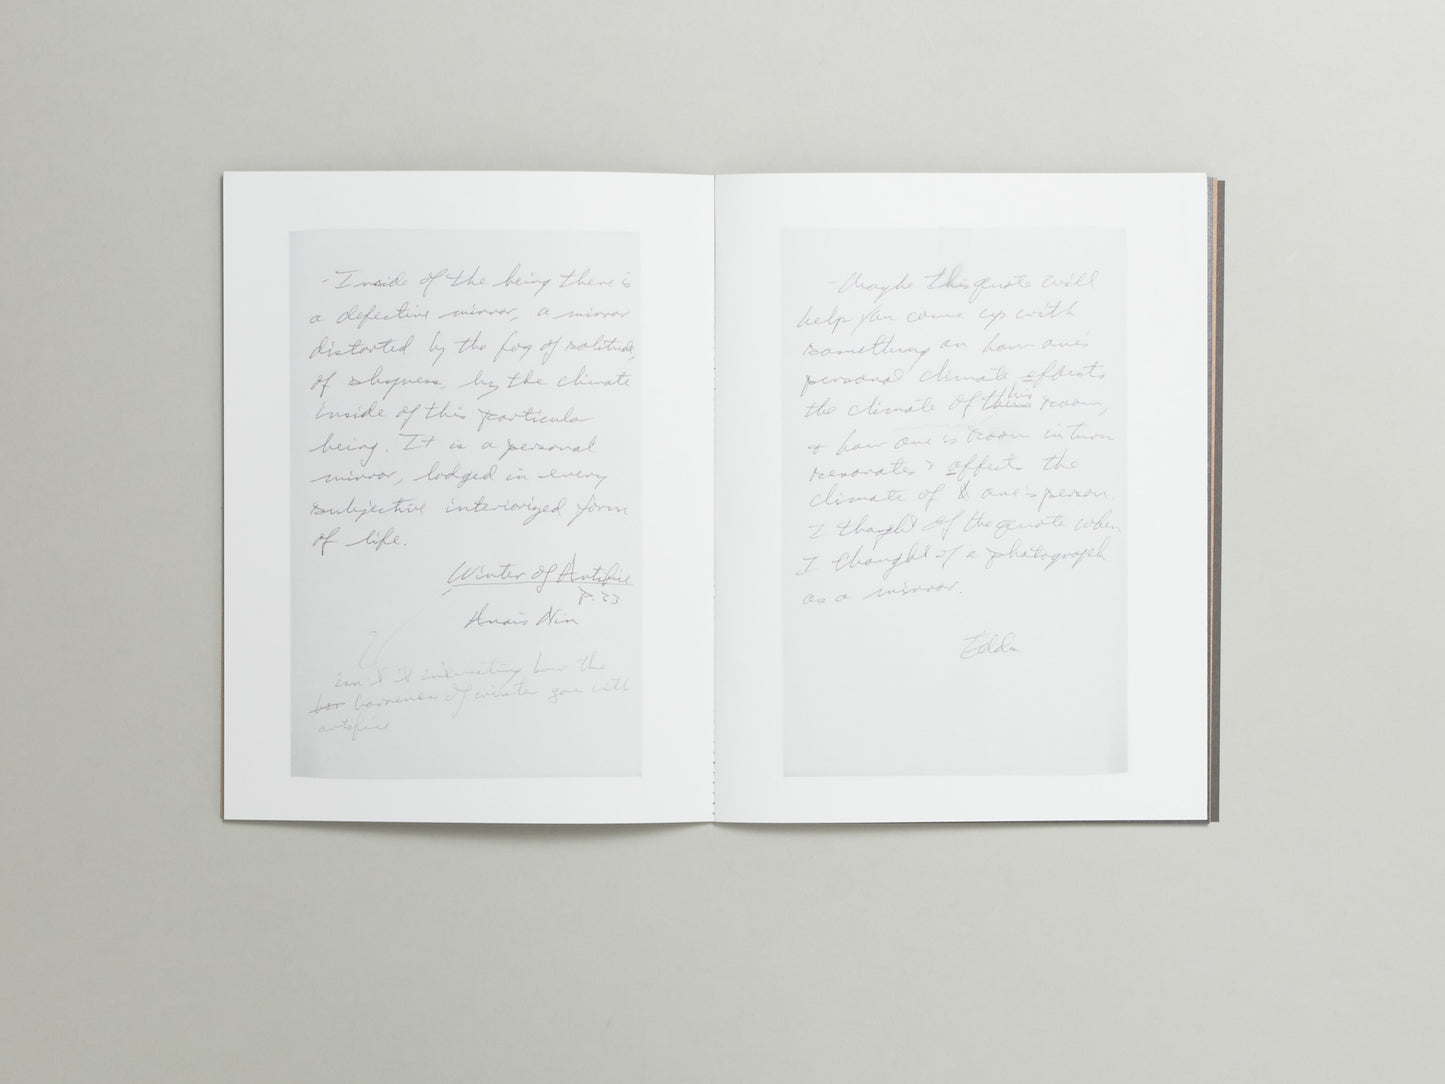 - Inside of the being there is
a defective mirror, a mirror
distorted by the fog of solitude,
of shyness, by the climate
inside of this particular
being. It is a personal
mirror, lodged in every
subjective interiorized form
of life.
Winter of Artifice
P. 33
Anais Nin
isn't it interesting how the
bar barreness of winter goes with
artifice
- Maybe this quote will
help you come up with
something on how one's
personal climate effects
the climate of this room,
& how one's room in turn
resonates & affects the
climate of one's person.
I thought of the quote when
I thought of a photograph
as a mirror.